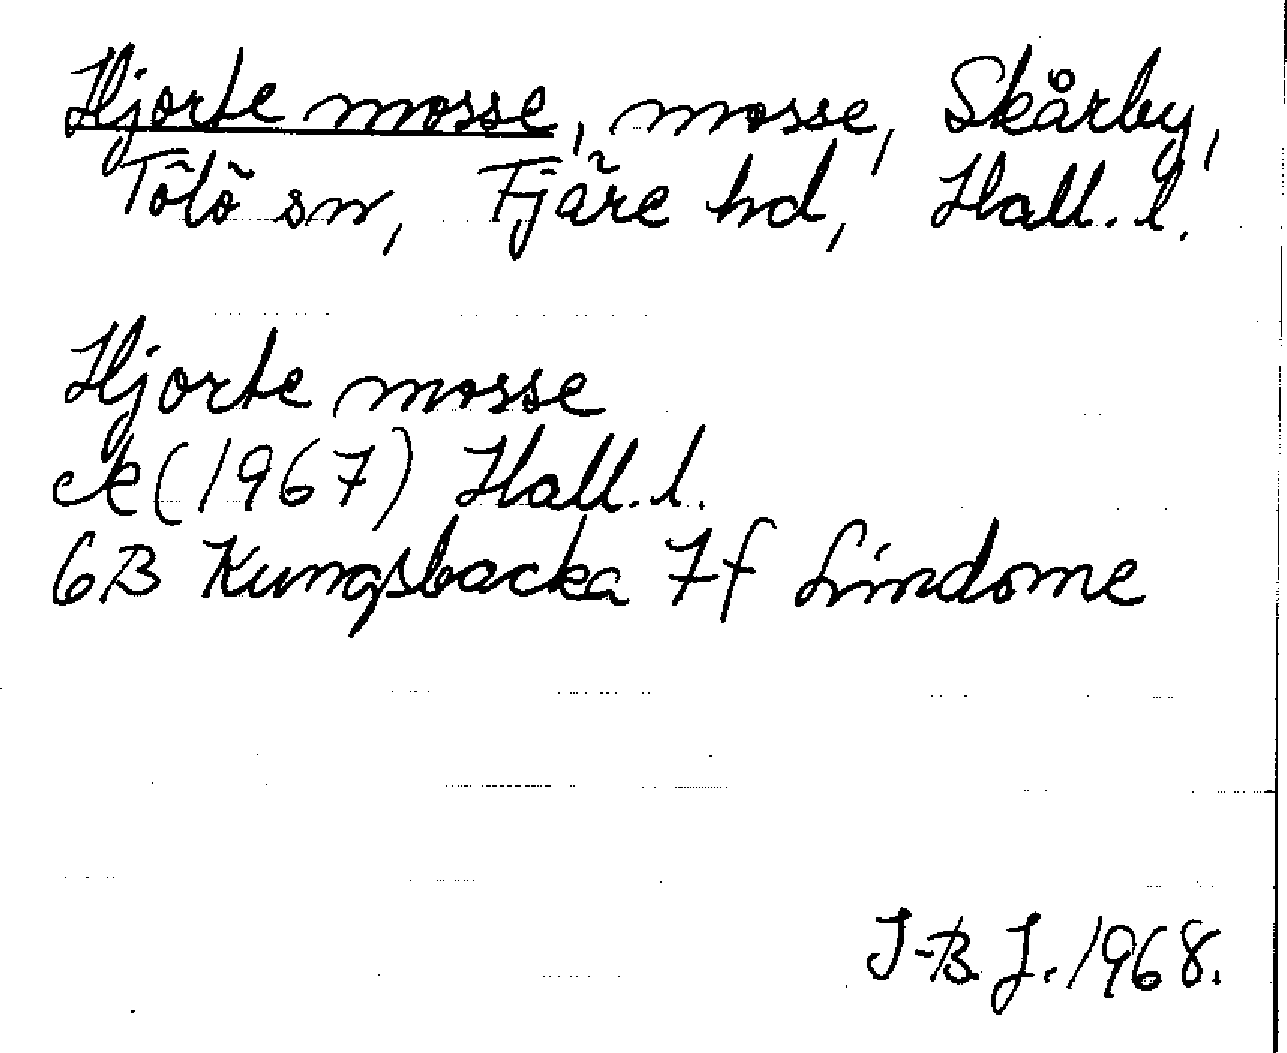 Hjorte mosse, mosse, Skårby,
Tölö sn, Fjäre hd, Hall. l.
Hjorte mosse
ek (1967) Hall. l.
6B Kungsbacka 7f Lindome
J-B. J. 1968.